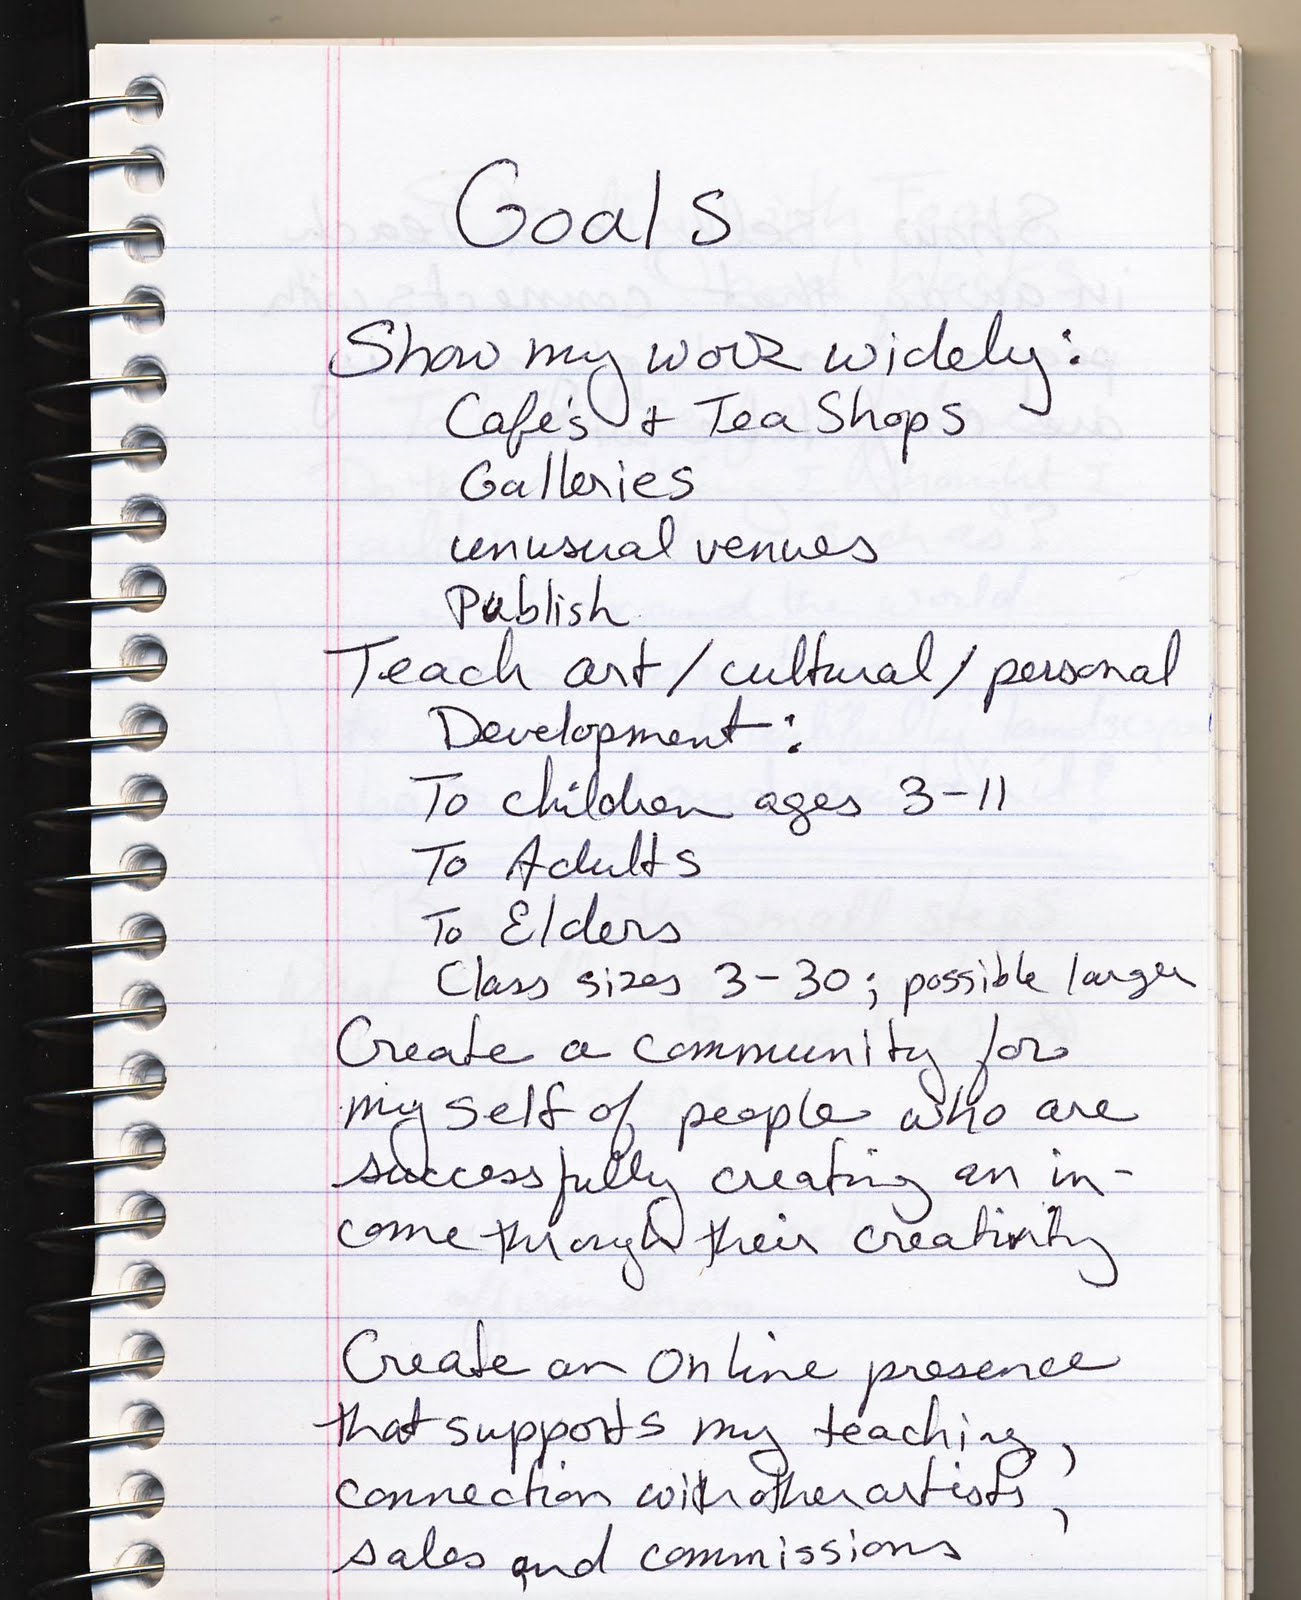 Goals
Show my work widely:
Cafe's & Tea Shops
Galleries
unusual venues
Publish
Teach art/cultural/personal
Development:
To children ages 3-11
To Adults
To Elders
Class sizes 3-30; possible larger
Create a community for
myself of people who are
successfully creating an in-
come through their creativity
Create an online presence
that supports my teaching,
connection with other artists,
sales and commissions